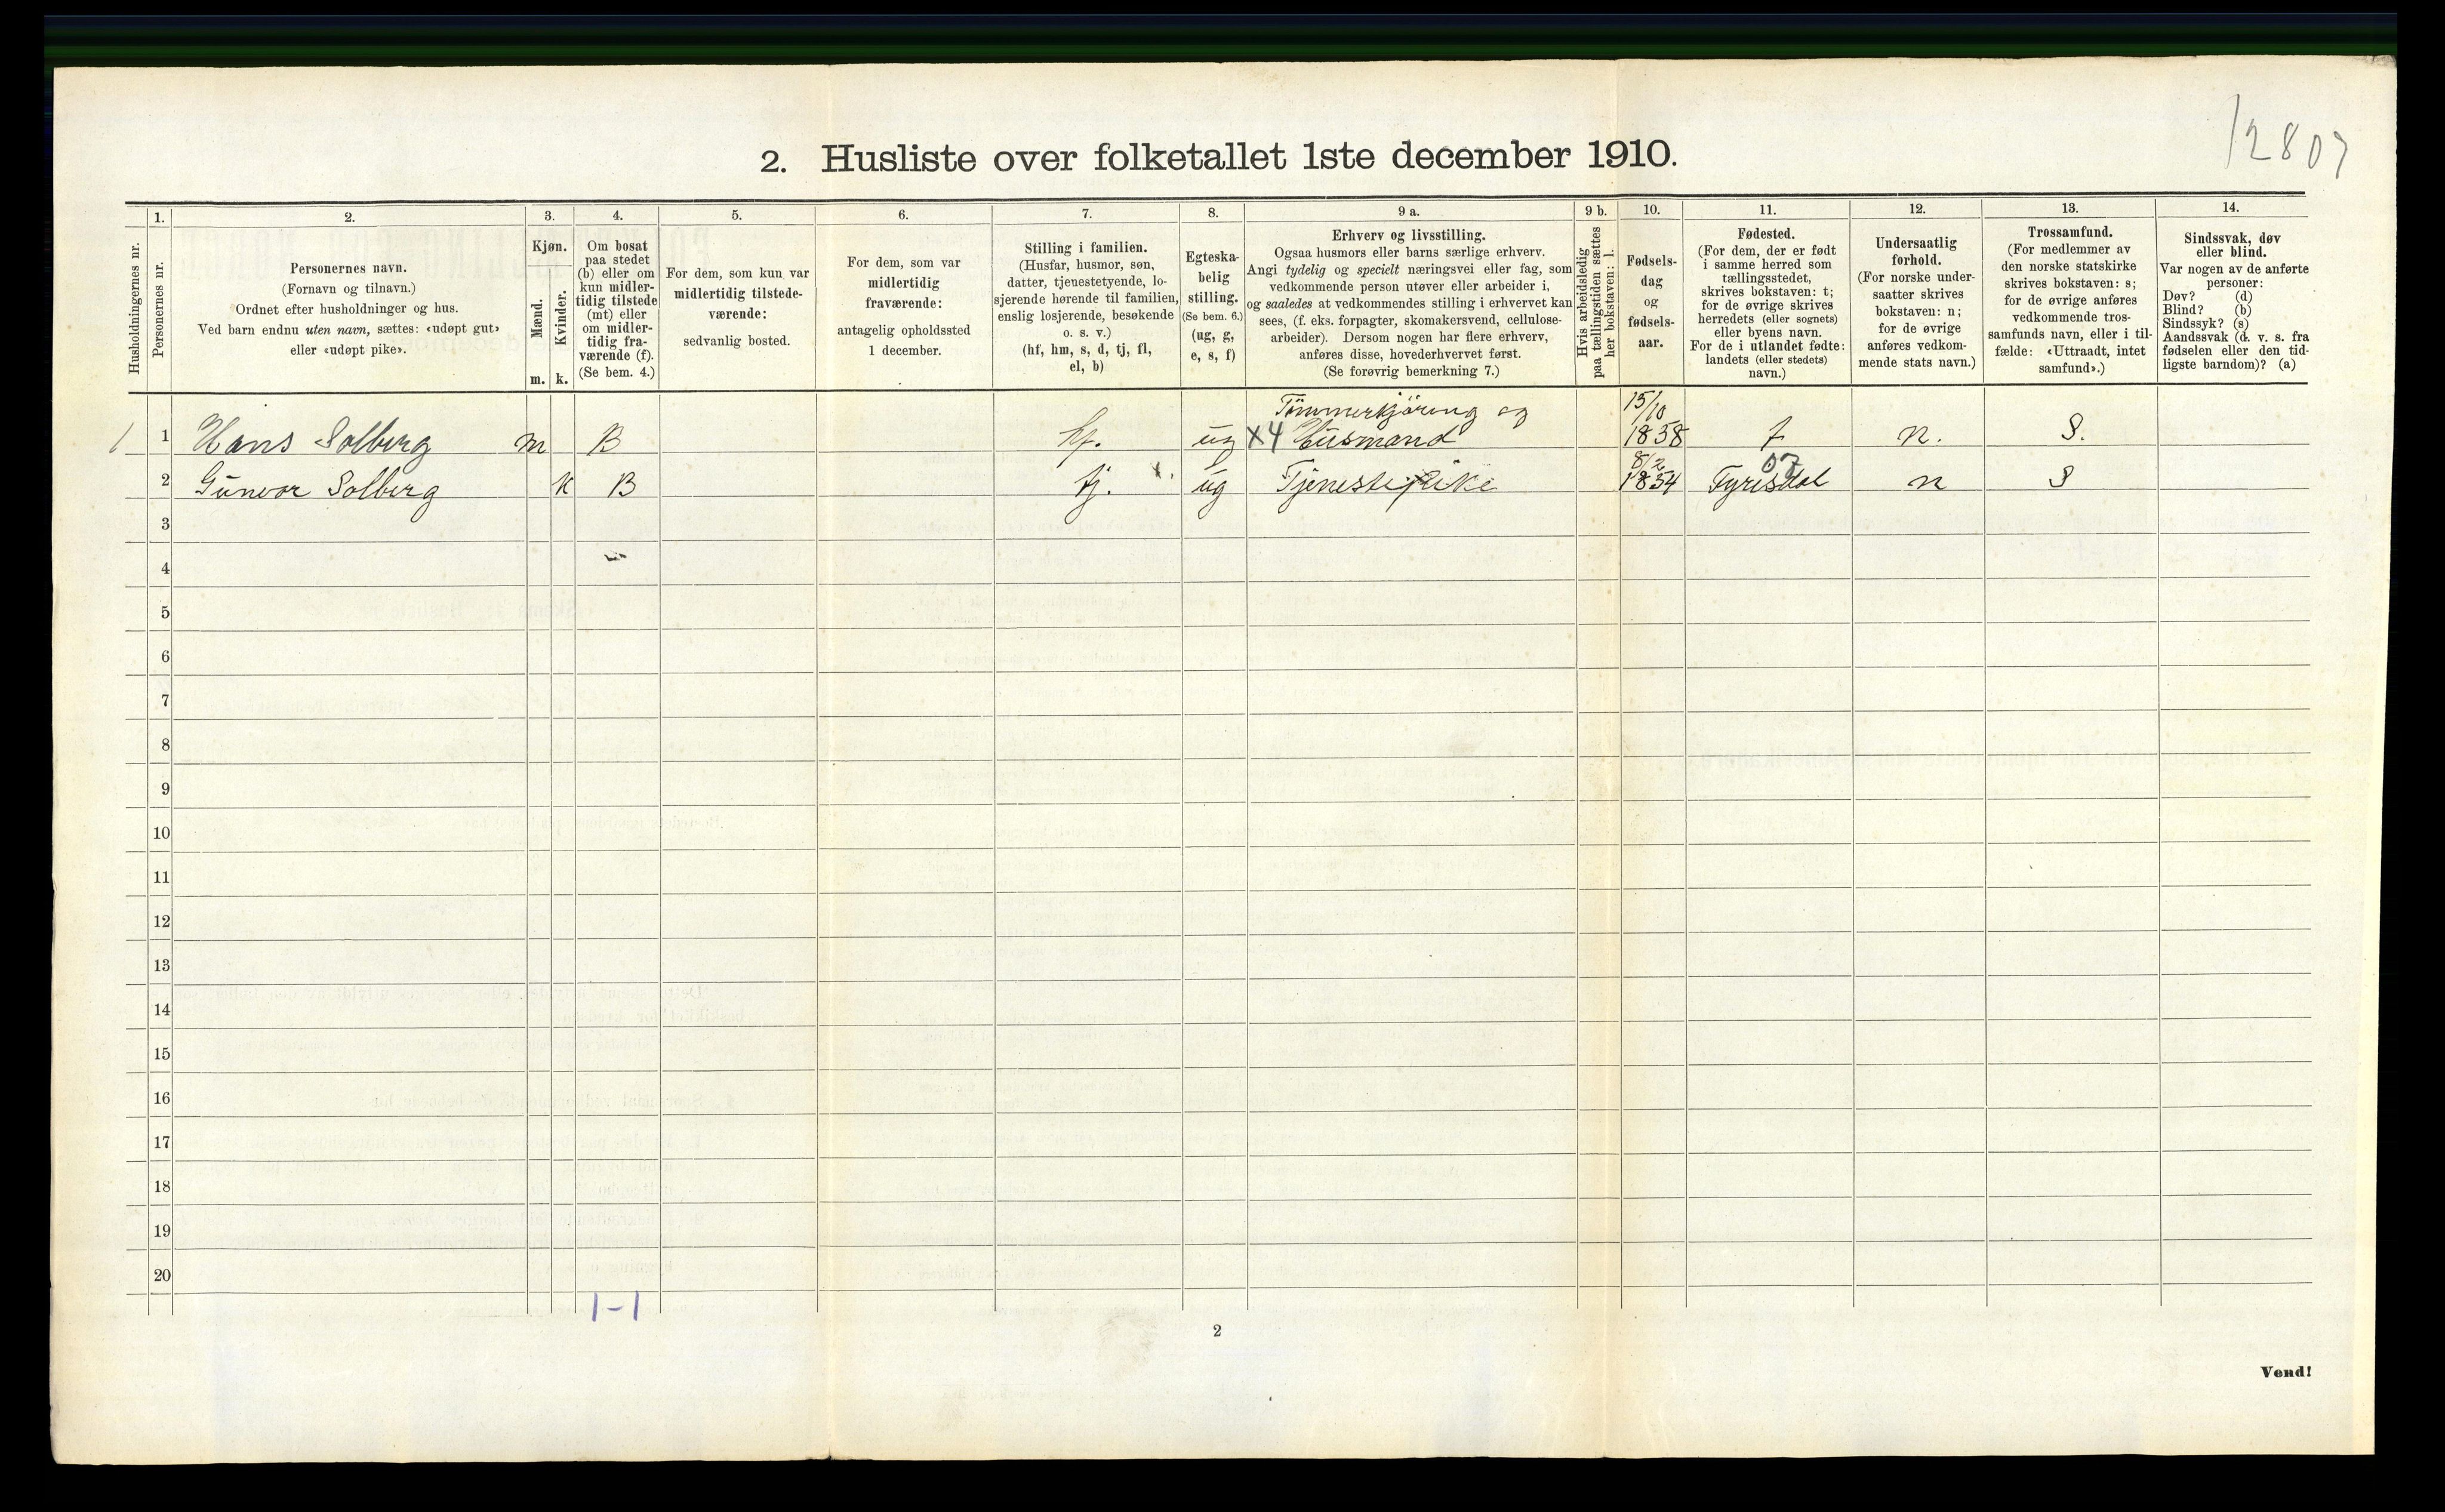 12807
2. Husliste over folketallet 1ste december 1910.
Husholdningernes nr.
1.
Personernes nr.
2.
Personernes navn.
(Fornavn og tilnavn.)
Ordnet efter husholdninger og hus.
Ved barn endnu uten navn, sættes: «udøpt gut»
eller «udøpt pike».
3.
Kjøn.
Mænd.
Kvinder.
m. k.
4.
Om bosat
paa stedet
(b) eller om
kun midler-
tidig tilstede
(mt) eller
om midler-
tidig fra-
værende (f).
(Se bem. 4.)
5.
For dem, som kun var
midlertidig tilstede-
værende:
sedvanlig bosted.
6.
For dem, som var
midlertidig
fraværende:
antagelig opholdssted
1 december.
7.
Stilling i familien.
(Husfar, husmor, søn,
datter, tjenestetyende, lo-
sjerende hørende til familien,
enslig losjerende, besøkende
o. s. v.)
(hf, hm, s, d, tj, fl,
el, b)
8.
Egteska-
belig
stilling.
(Se bem. 6.)
(ug, g,
e, s, f)
9 a.
Erhverv og livsstilling.
Ogsaa husmors eller barns særlige erhverv.
Angi tydelig og specielt næringsvei eller fag, som
vedkommende person utøver eller arbeider i,
og saaledes at vedkommendes stilling i erhvervet kan
sees, (f. eks. forpagter, skomakersvend, cellulose-
arbeider). Dersom nogen har flere erhverv,
anføres disse, hovederhvervet først.
(Se forøvrig bemerkning 7.)
9 b.
Hvis arbeidsledig
paa tællingstiden sættes
her bokstaven: l.
10.
Fødsels-
dag
og
fødsels-
aar.
11.
Fødested.
(For dem, der er født
i samme herred som
tællingsstedet,
skrives bokstaven: t;
for de øvrige skrives
herredets (eller sognets)
eller byens navn.
For de i utlandet fødte:
landets (eller stedets)
navn.)
12.
Undersaatlig
forhold.
(For norske under-
saatter skrives
bokstaven: n;
for de øvrige
anføres vedkom-
mende stats navn.)
13.
Trossamfund.
(For medlemmer av
den norske statskirke
skrives bokstaven: s;
for de øvrige anføres
vedkommende tros-
samfunds navn, eller i til-
fælde: «Uttraadt, intet
samfund».)
14.
Sindssvak, døv
eller blind.
Var nogen av de anførte
personer:
Døv? (d)
Blind? (b)
Sindssyk? (s)
Aandssvak (d. v. s. fra
fødselen eller den tid-
ligste barndom)? (a)
Tömmerkjöring og 15/10
1 1 Hans Solberg m B hf. ug X4 Husmand 1838 t n. S.
8/2 07
2 Gunvor Solberg k B tj. ug Tjenestepike 1854 Fyrisdal n S
3
4
5
6
7
8
9
10
11
12
13
14
15
16
17
18
19
20
1-1
2
Vend!